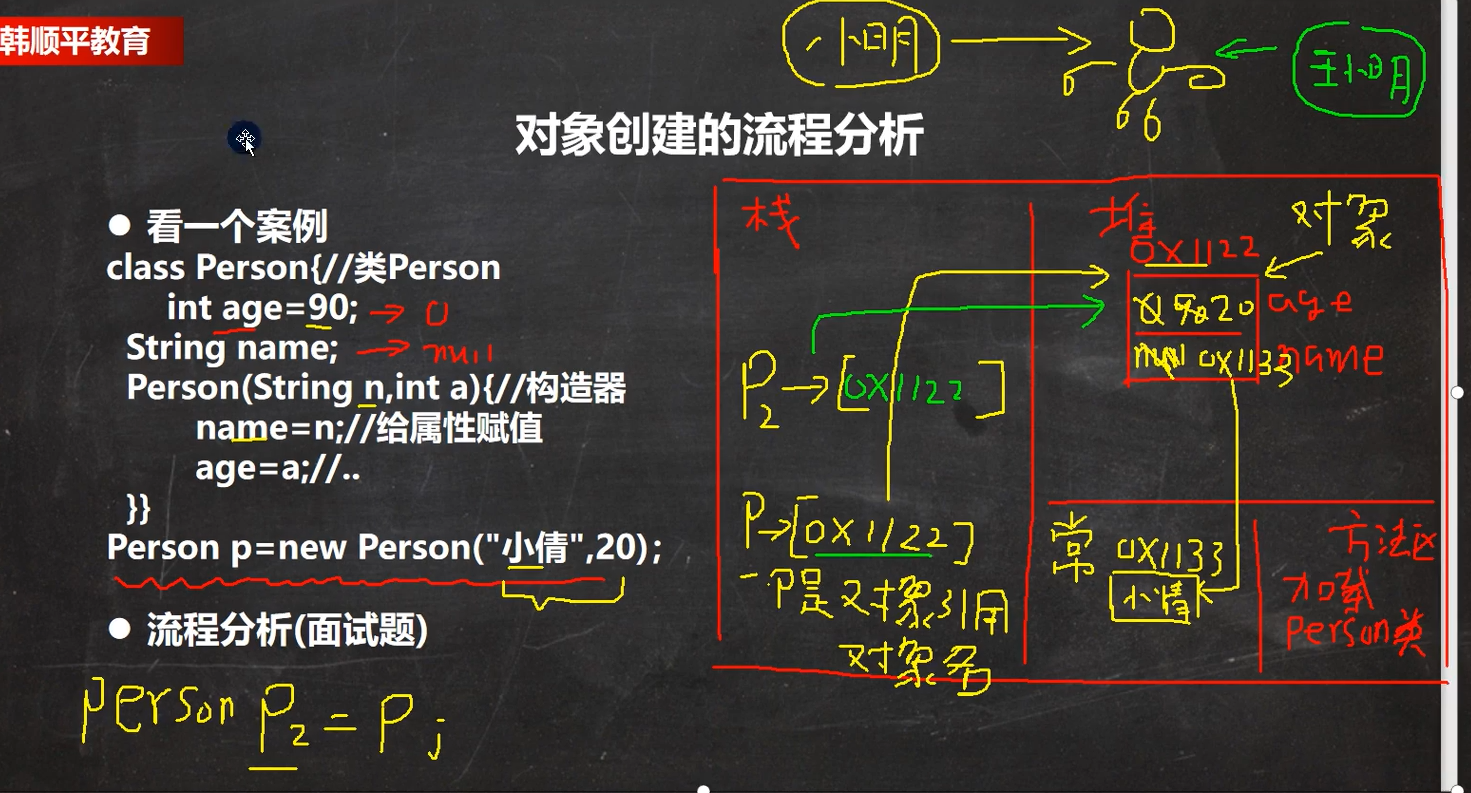 韩顺平教育
小明
王小明
对象创建的流程分析
● 看一个案例
class Person{//类Person
int age=90; → 0
String name; → null
Person(String n,int a){//构造器
name=n;//给属性赋值
age=a;//..
}}
Person p=new Person("小倩",20);
● 流程分析(面试题)
Person P2 = P;
栈
P2→[0X1122]
P→[0X1122]
P是对象引用
对象名
堆
对象
0X1122
0 90 20 age
null 0X1133 name
常
0X1133
小倩
方法区
加载
Person类